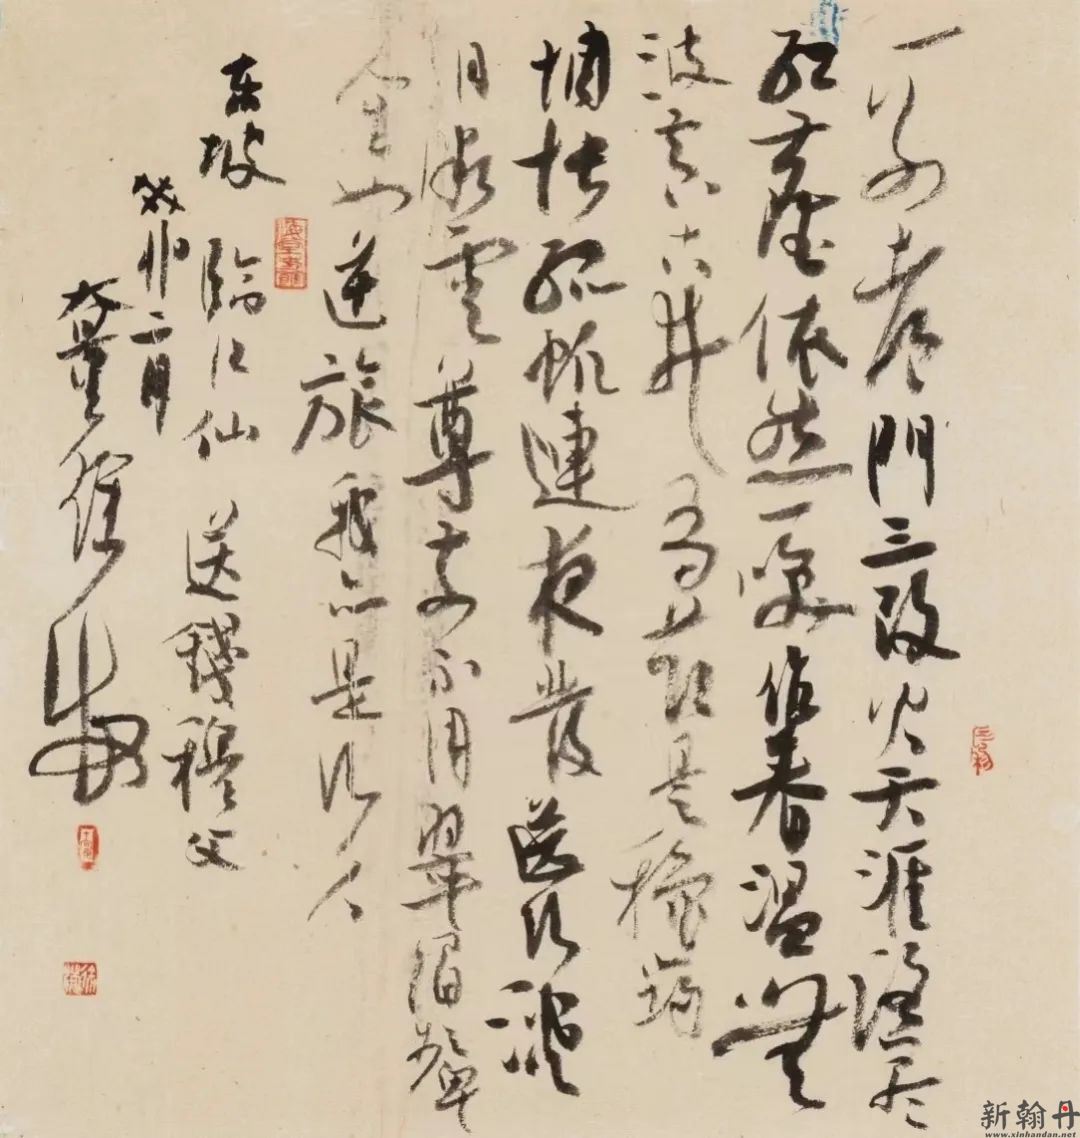 一别都門三改火天涯踏尽
红塵依然一笑作春温無
波真古井有节是秋筠
惆悵孤帆連夜發送行淡
月微雲尊前不用翠眉颦
人生如逆旅我亦是行人
东坡 臨江仙 送錢穆父
癸卯二月
新翰丹
www.xinhandan.net